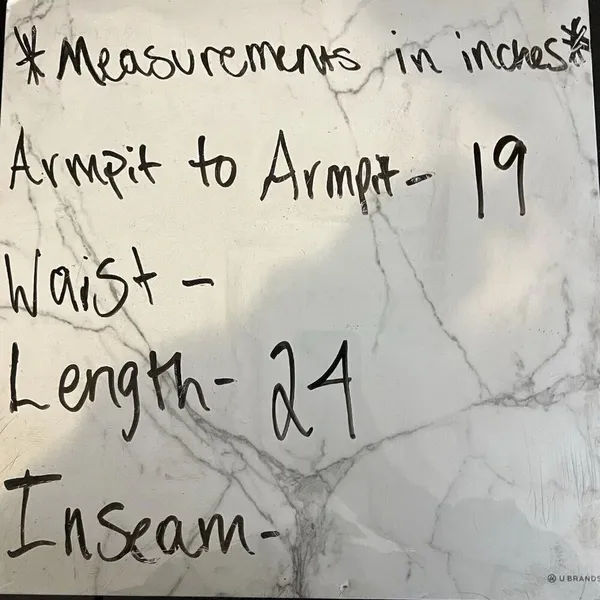 *Measurements in inches*
Armpit to Armpit- 19
Waist -
Length- 24
Inseam-
U BRANDS